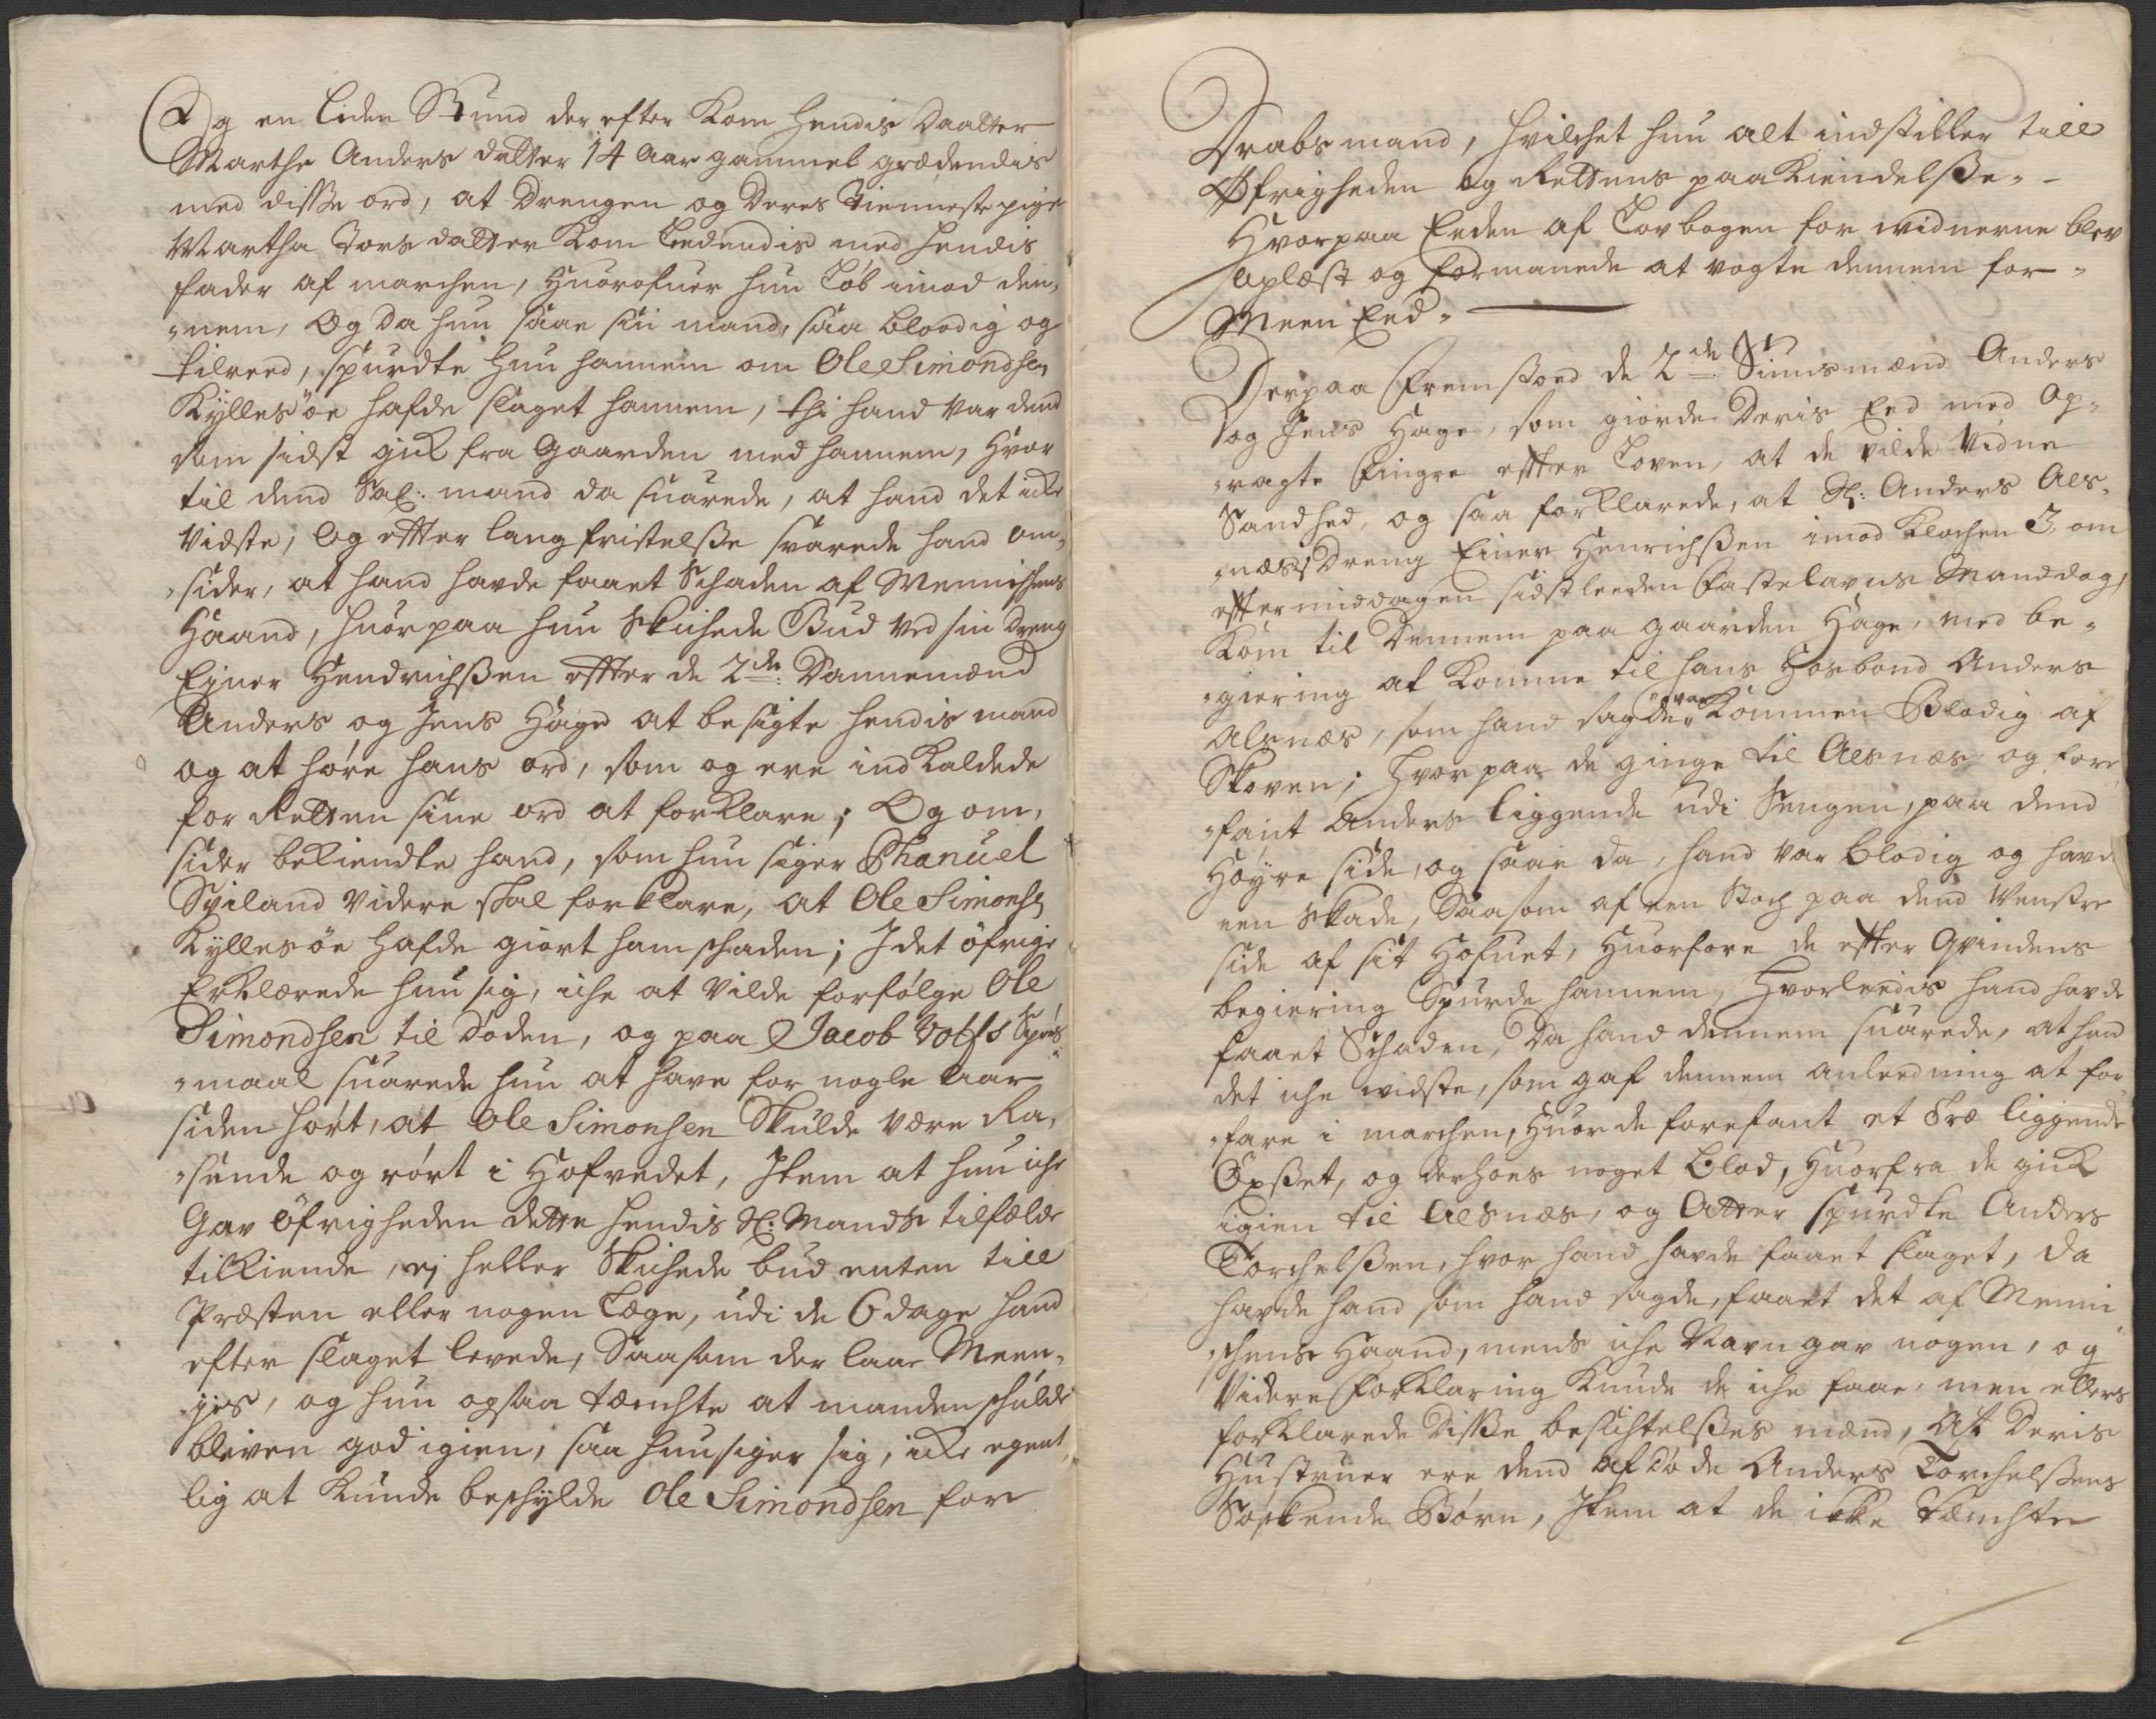 Og en liden Stund der efter Kom hendis Daatter
Marthe Anders datter 14 aar gammel grædendis
med disse ord, at Drengen og Deres Tienneste pige
Martha Tors datter Kom Ledendis med hendis
fader af marchen, Huorofuer hun Løb imod den,
„nem, Og da hun saae sin mand, saa bloodig og
tilreed, spurdte hun hannem om Ole Simondsen
Kyllesøe hafde slaget hannem, thi hand var dend
som sidst gik fra Gaarden med hannem, hvor
til dend Sal: mand da suarede, at hand det icke
Vidste, Og etter lang fristelsse svarede hand om,
„sider, at hand havde faaet Schaden af Mennischens
Haand, huorpaa hun Skichede Bud ved sin dreng
Ejner Hendrichssen etter de 2de: Dannemænd
Anders og Jens Hage at besigte hendis mand
og at høre hans ord, som og ere indkaldede
for Retten sine ord at forklare; Og om,
sider bekiendte hand, som hun siger Phanuel
Sviland videre skal forklare, at Ole Simonsen
Kyllesøe hafde giort ham schaden; I det øfrige
Erklærede hun sig, iche at vilde forfølge Ole
Simondsen til døden, og paa Jacob Volfs Spørs
„maal suarede hun at have for nogle aar
siden hørt, at Ole Simonsen Skulde være Ra,
„sende og rørt i Hofvedet, Item at hun iche
Gav Øfrigheden dette hendis Sl: Mands tilfælde
tilkiende, ej heller Skichede bud enten till
Præsten eller nogen Læge, udi de 6 dage hand
efter slaget levede, Saasom der laae Meen,
jis, og hun ogsaa tænchte at manden schulde
bliven god igien, saa hun siger sig, icke egent,
lig at kunde beschylde Ole Simondsen for
Drabs mand, hvilchet hun alt indstiller till
Øfrigheden og Rettens paakiendelsse.-
Hvorpaa Eeden af Lovbogen for widnerne blev
oplæst og formanede at vogte dennem for
Meen Eed.
Derpaa fremstoed de 2de Siunsmænd Anders
og Jens Hage, som giorde Deris Eed med Op,
„ragte fingre etter Loven, at de vilde vidne
Sandhed, og saa forklarede, at Sl: Anders Als,
„næss Dreng Einer Henrichssen imod Klochen 3, om
eftermiddagen sidstleeden fastelavns Manddag,
Kom til dennem paa gaarden Hage, med be,
„giering at komme til hans Hosbond Anders
Alsnæs, som hand sagde var Kommen Blodig af
Skoven; hvorpaa de ginge til Alsnæs og fore
„fant Anders liggende udi Sengen, paa dend
Høyre side, og saae da, hand var blodig og havde
een skade, Saasom af een Stoch paa dend venstre
side af sit Hofuet, Huorfore de etter Qvindens
begiering Spurde hannem, Hvorleedis hand havde
faaet Schaden, Da hand dennem suarede, at hand
det iche widste, som gaf dennem anleedning at for
„fare i marchen, Huor de forefant et Træ liggende
Opsset, og derhoes noget blod, Huorfra de gick
igien til Alsnæs, og Atter spurdte Anders
Torchelssen, hvor hand havde faaet slaget, da
havde hand som hand sagde, faaet det af Menni
„schens Haand, mens iche Navn gav nogen, og
Videre forklaring kunde de iche faae, men ellers
forklarede disse besichtelsses mænd, at Deris
Hustruer ere dend afdøde Anders Torchelssens
Søskende Børn, Item at de ikke tænchte